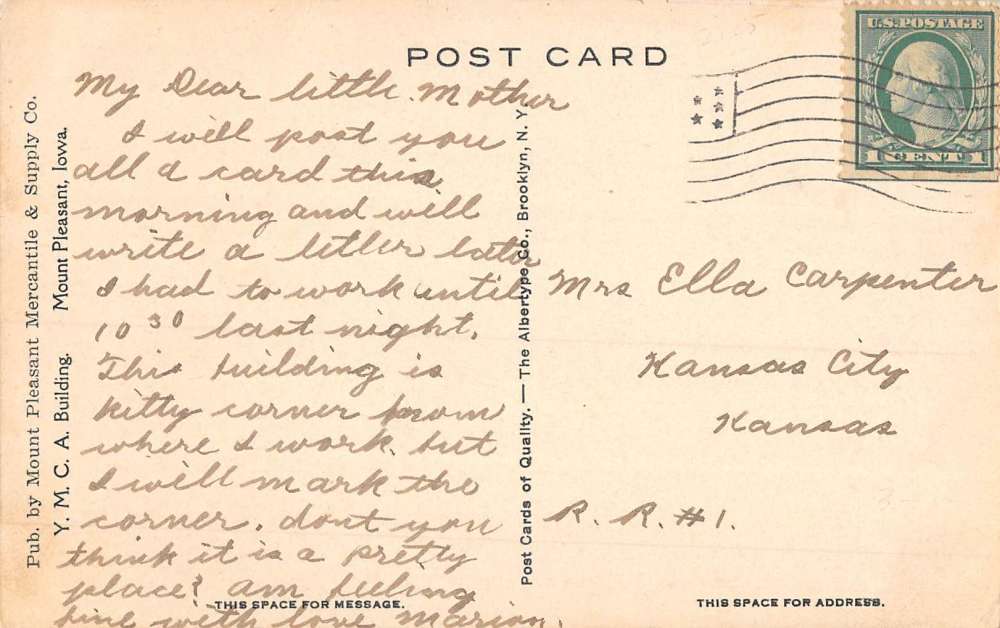 POST CARD
U.S. POSTAGE
1 CENT 1
Pub. by Mount Pleasant Mercantile & Supply Co.
Y. M. C. A. Building. Mount Pleasant, Iowa.
My Dear little Mother
I will post you
all a card this
morning and will
write a letter later
I had to work until
10 30 last night.
This building is
kitty corner from
where I work. but
I will mark the
corner. dont you
think it is a pretty
place? am feeling
fine with love Marion.
THIS SPACE FOR MESSAGE.
Post Cards of Quality. — The Albertype Co., Brooklyn, N. Y.
Mrs Ella Carpenter
Kansas City
Kansas
R. R. #1.
THIS SPACE FOR ADDRESS.